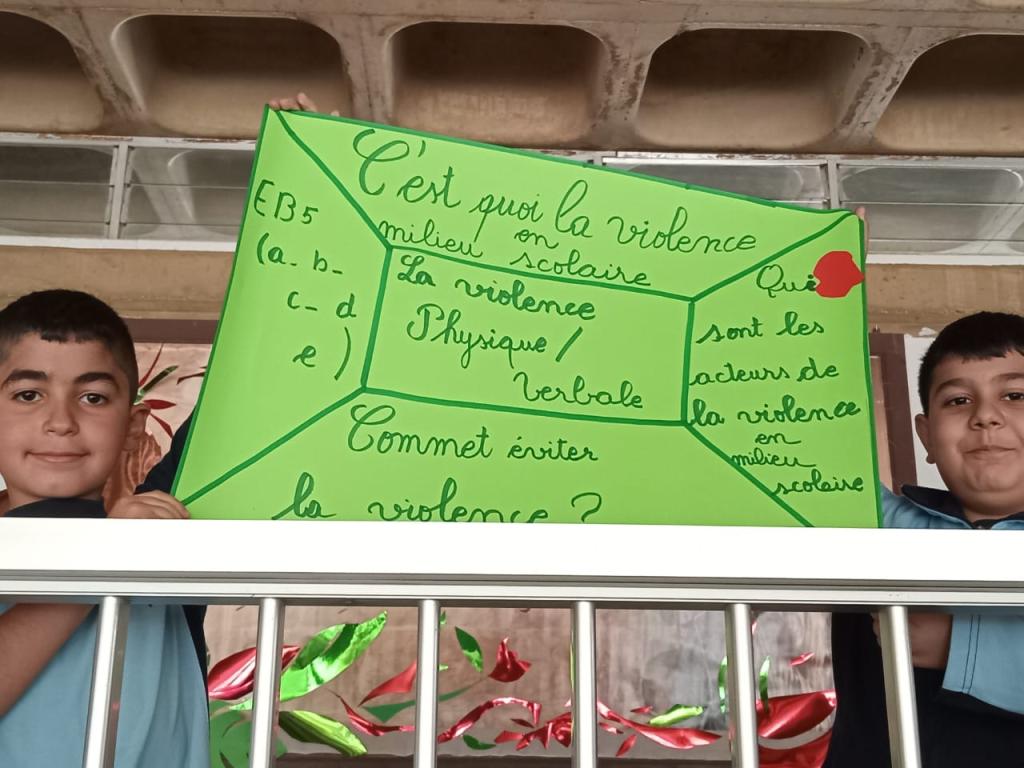 C'est quoi la violence
en
milieu scolaire
EB5
(a- b-
c- d
e)
La violence
Physique /
Verbale
Qui
sont les
acteurs de
la violence
en
milieu
scolaire
Commet éviter
la violence ?